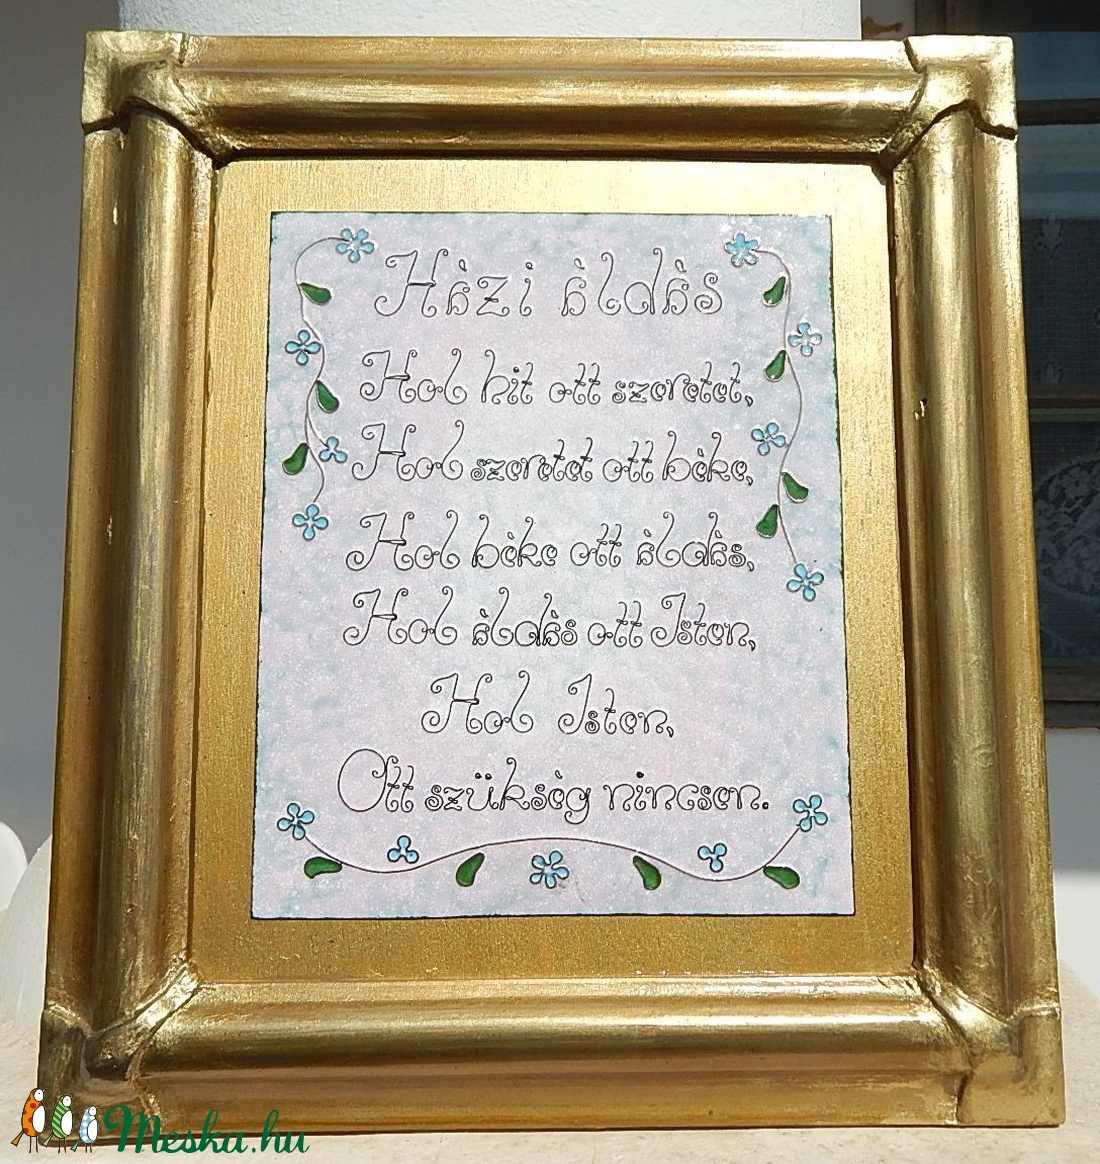 Házi áldás
Hol hit ott szeretet,
Hol szeretet ott béke,
Hol béke ott áldás,
Hol áldás ott Isten,
Hol Isten,
Ott szükség nincsen.
Meska.hu